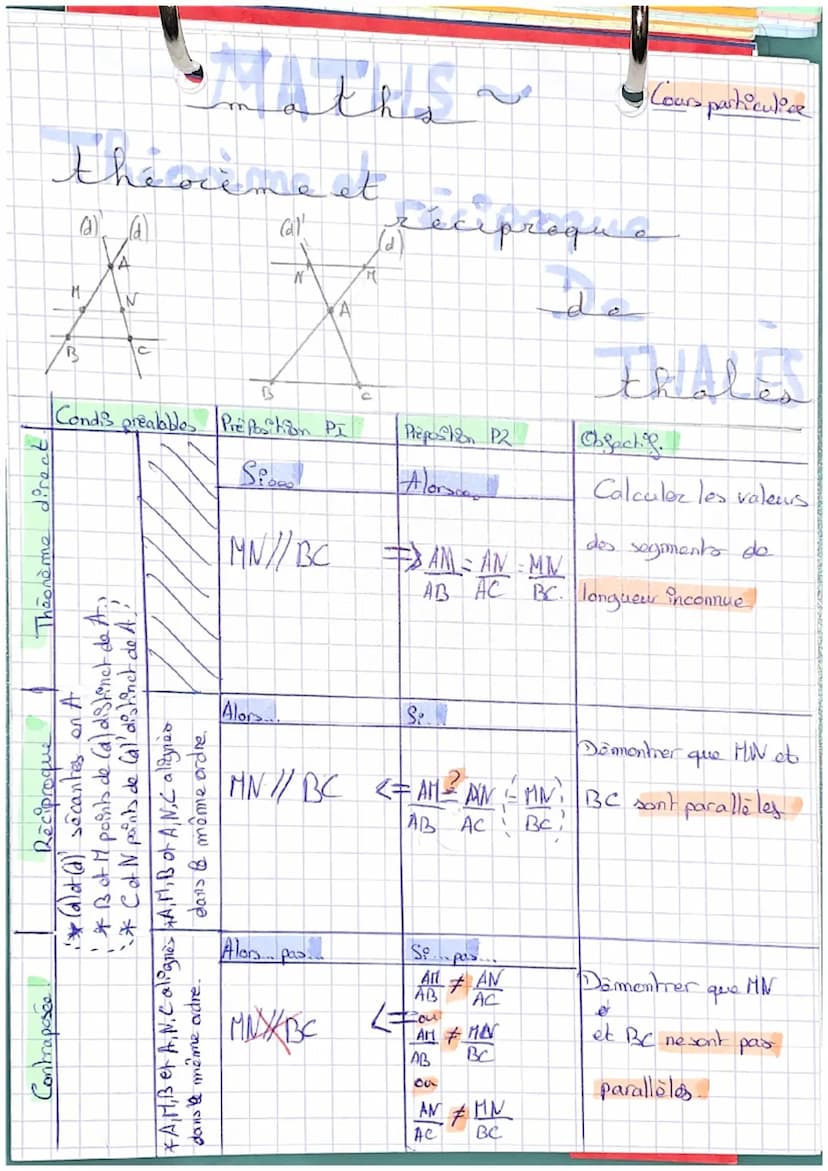 MATHS
maths ~
Cours particulier
Théorème et
théorème et
réciproque
réciproque
De
de
THALÈS
thalès
(d)' (d)
A
M N
B C
(d)' (d)
N M
A
B C
Condis préalables
Préposition P1
Préposition P2
Objectif.
Théorème direct
* (d) et (d)' sécantes en A
* B et M points de (d) distinct de A.
* C et N points de (d)' distinct de A.
Si...
Alors...
MN // BC
=> AM/AB = AN/AC = MN/BC.
Calculer les valeurs
des segments de
longueur inconnue
Réciproque
* A, M, B et A, N, C alignés
dans le même ordre.
Alors...
Si...
MN // BC
<= AM/AB =? AN/AC (= MN/BC)
Démontrer que MN et
BC sont parallèles
Contraposée
* A, M, B et A, N, C alignés
dans le même ordre.
Alors... pas...
Si... pas...
MN // BC
<=
AM/AB ≠ AN/AC
ou
AM/AB ≠ MN/BC
ou
AN/AC ≠ MN/BC
Démontrer que MN
et BC ne sont pas
parallèles.